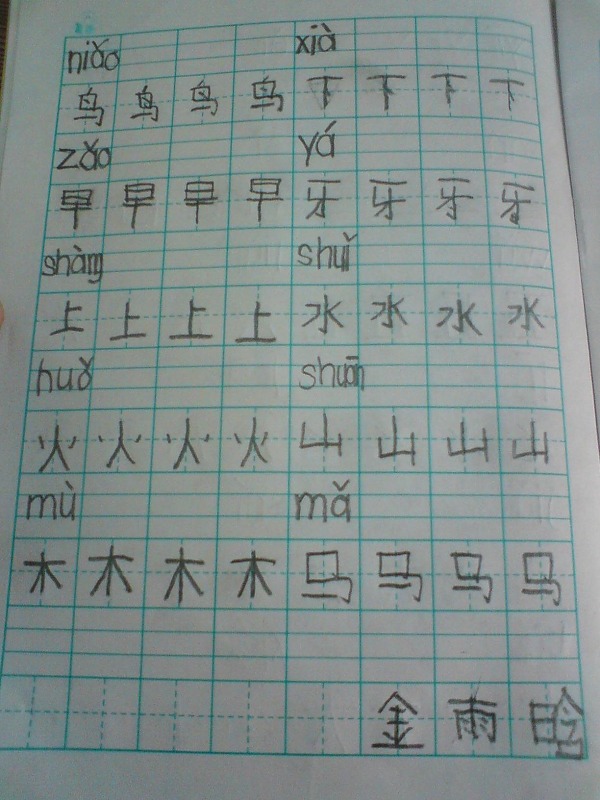 niǎo xià
鸟 鸟 鸟 鸟 下 下 下 下
zǎo yá
早 早 早 早 牙 牙 牙 牙
shàng shuǐ
上 上 上 上 水 水 水 水
huǒ shuān
火 火 火 火 山 山 山 山
mù mǎ
木 木 木 木 马 马 马 马
金 雨 晗